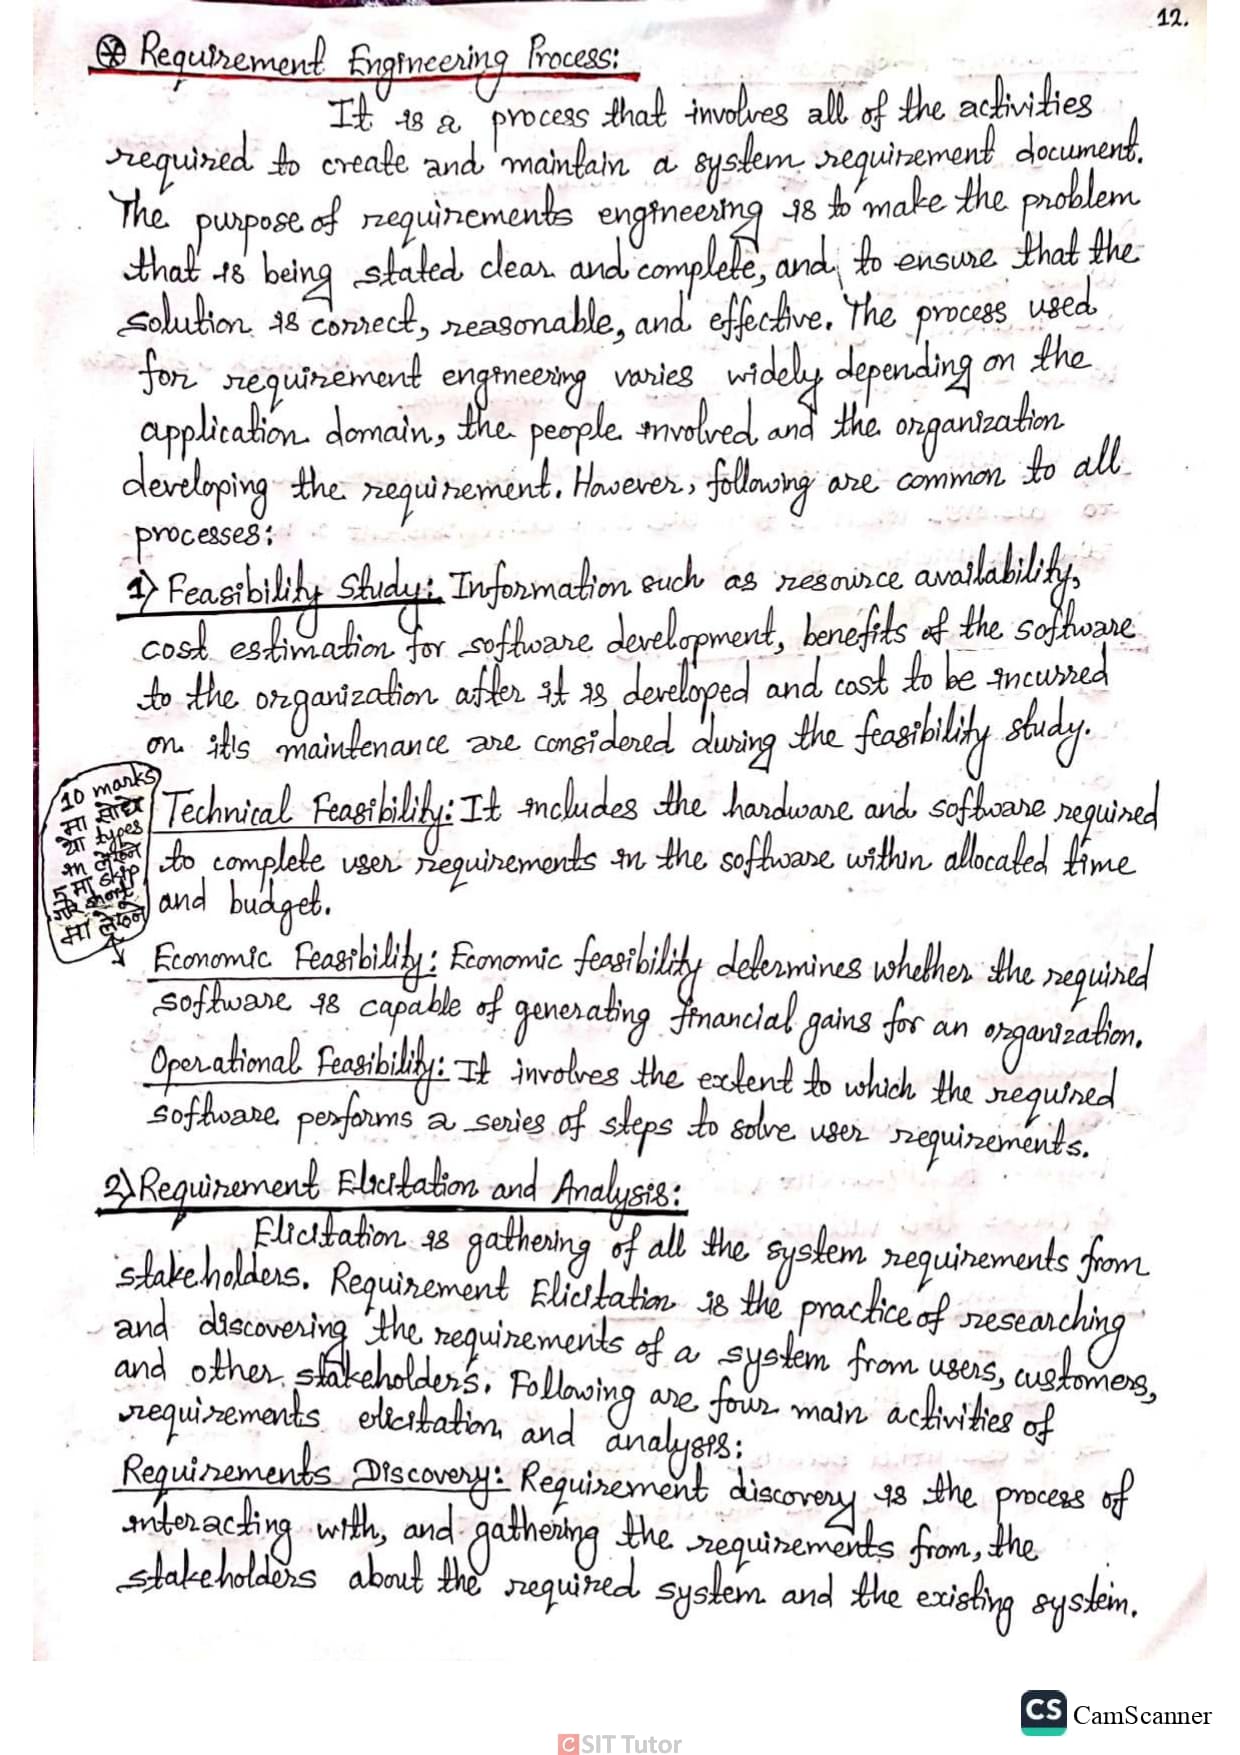 12.
Requirement Engineering Process:
It is a process that involves all of the activities
required to create and maintain a system requirement document.
The purpose of requirements engineering is to make the problem
that is being stated clear and complete, and to ensure that the
solution is correct, reasonable, and effective. The process used
for requirement engineering varies widely depending on the
application domain, the people involved and the organization
developing the requirement. However, following are common to all
processes:
1) Feasibility Study: Information such as resource availability,
cost estimation for software development, benefits of the software
to the organization after it is developed and cost to be incurred
on it's maintenance are considered during the feasibility study.
10 marks
मा सोधे
यो types
नि लेख्ने
5 मा skip
गरे
मा लेख्ने
Technical Feasibility: It includes the hardware and software required
to complete user requirements in the software within allocated time
and budget.
Economic Feasibility: Economic feasibility determines whether the required
software is capable of generating financial gains for an organization.
Operational Feasibility: It involves the extent to which the required
software performs a series of steps to solve user requirements.
2) Requirement Elicitation and Analysis:
Elicitation is gathering of all the system requirements from
stakeholders. Requirement Elicitation is the practice of researching
and discovering the requirements of a system from users, customers,
and other stakeholders. Following are four main activities of
requirements elicitation and analysis:
Requirements Discovery: Requirement discovery is the process of
interacting with, and gathering the requirements from, the
stakeholders about the required system and the existing system.
CS CamScanner
CSIT Tutor